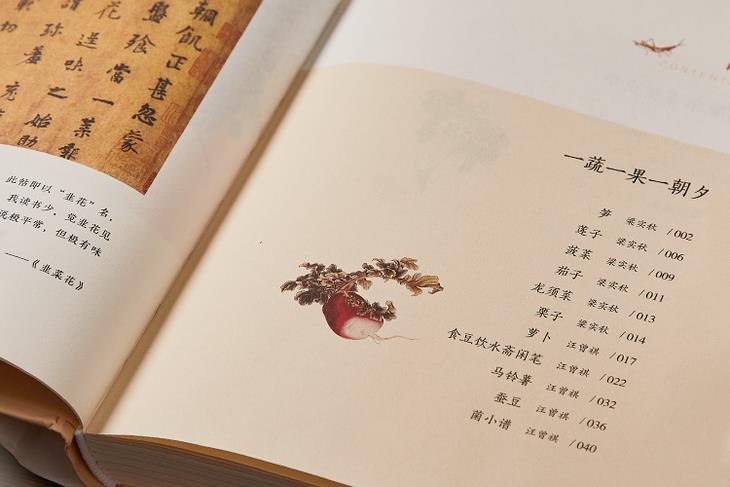 輖飢正甚忽蒙
盤飧當一葉報
花逞味之始助
謂珍羞充
切
此帖即以“韭花”名，
我读书少，觉韭花见
说极平常，但极有味
——《韭菜花》
CONTENT
一蔬一果一朝夕
笋 梁实秋 /002
莲子 梁实秋 /006
菠菜 梁实秋 /009
茄子 梁实秋 /011
龙须菜 梁实秋 /013
栗子 梁实秋 /014
萝卜 汪曾祺 /017
食豆饮水斋闲笔 汪曾祺 /022
马铃薯 汪曾祺 /032
蚕豆 汪曾祺 /036
菌小谱 汪曾祺 /040